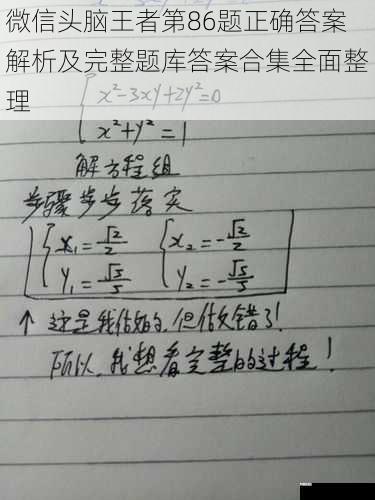 微信头脑王者第86题正确答案
解析及完整题库答案合集全面整
理
x²-3xy+2y²=0
x²+y²=1
解方程组
步骤步步落实
x₁=√2/2 x₂=-√2/2
y₁=√5/5 y₂=-√5/5
↑这是我做的,但做错了!
所以,我想看完整的过程!